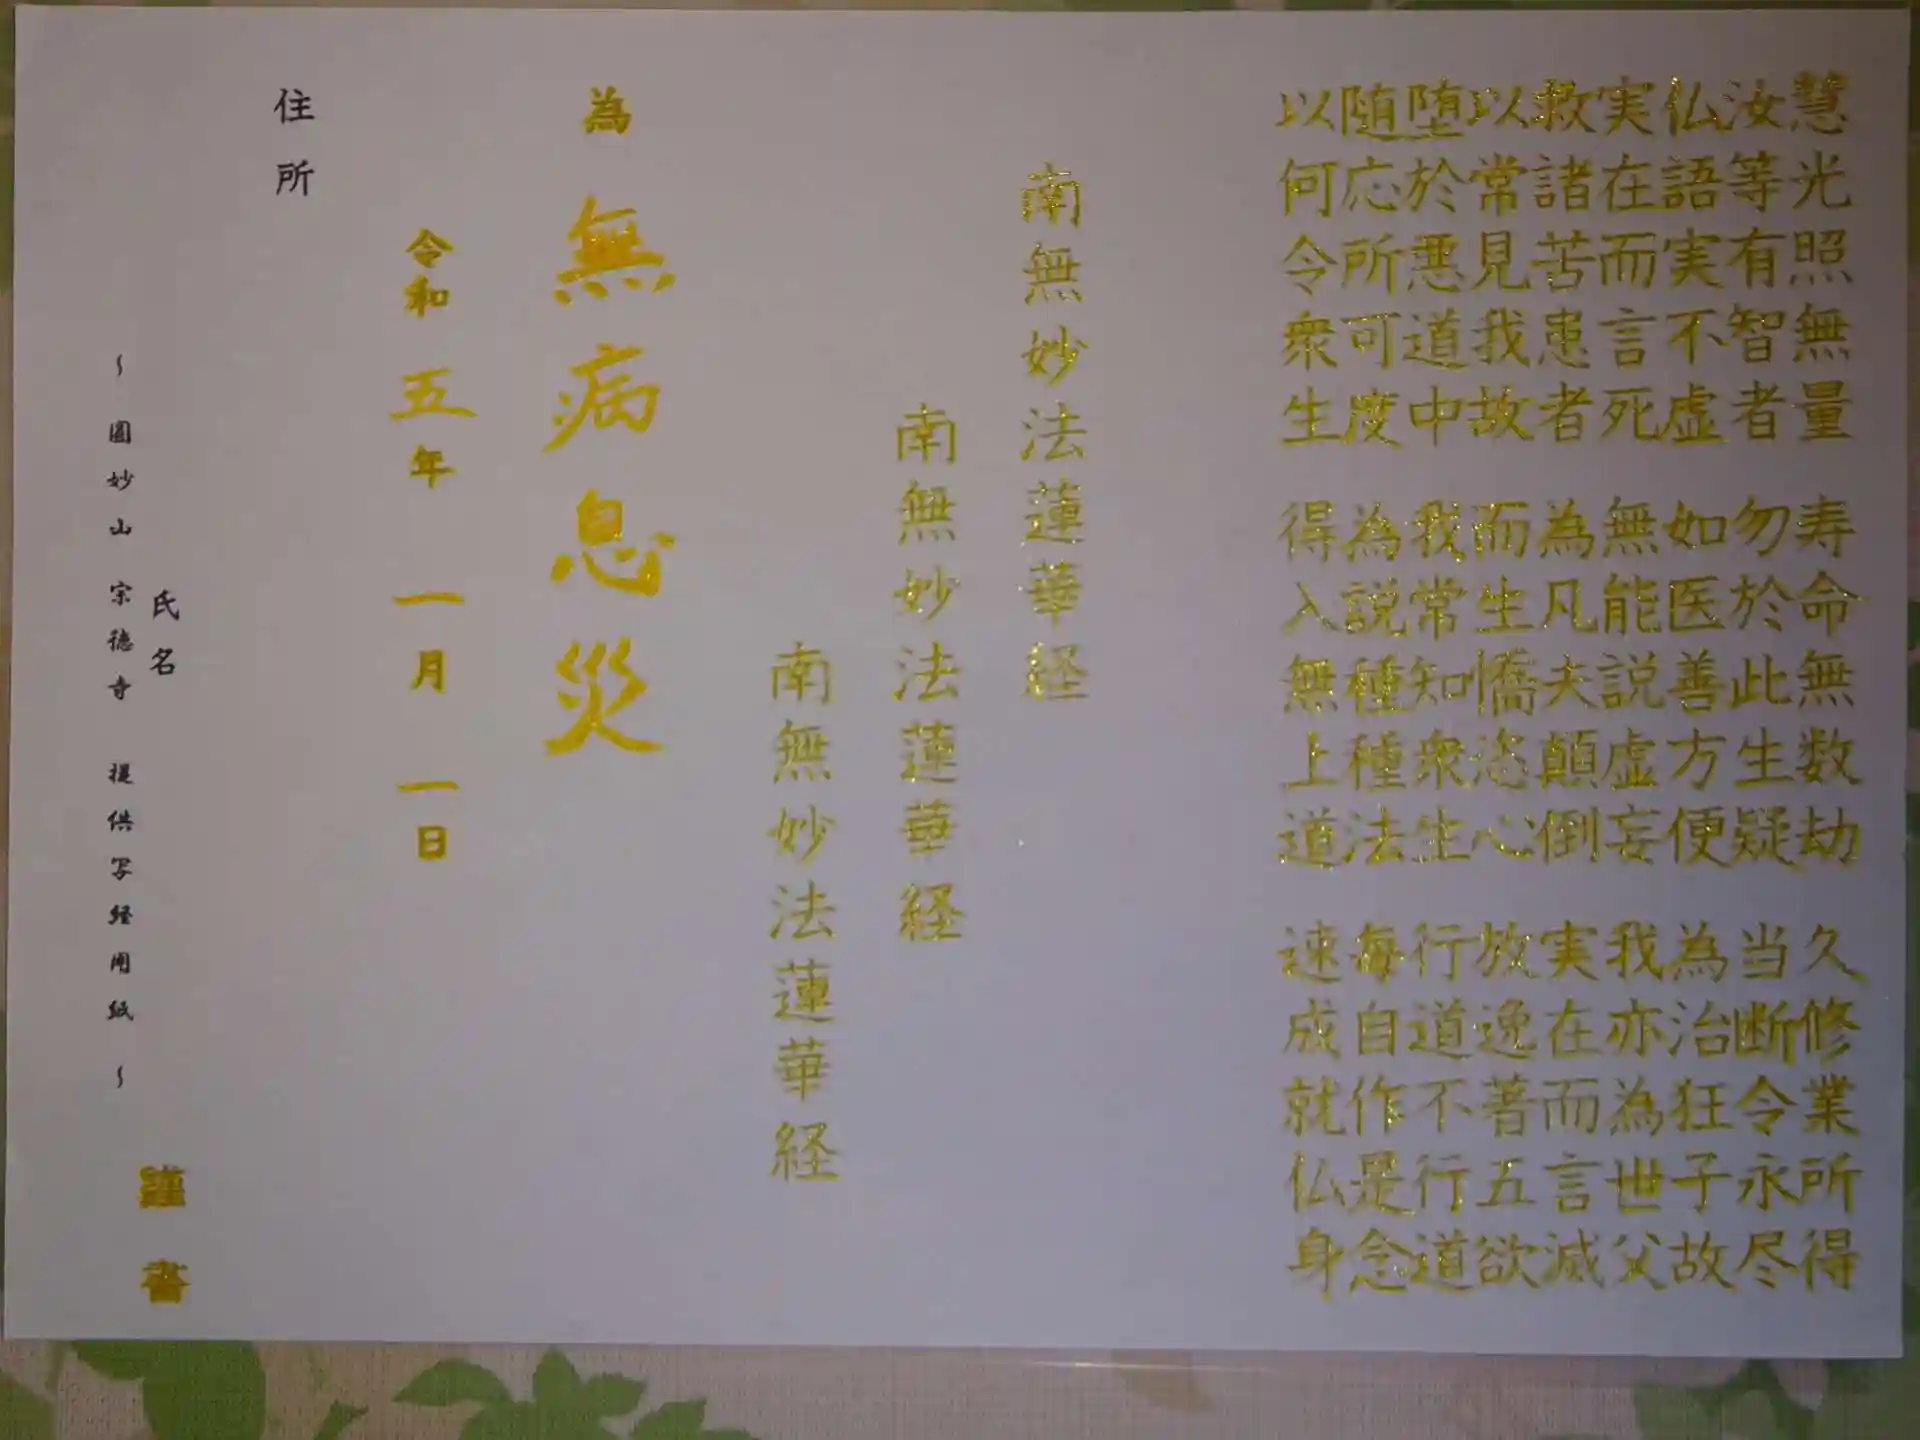 慧光照無量 寿命無数劫 久修業所得
汝等有智者 勿於此生疑 当断令永尽
仏語実不虚 如医善方便 為治狂子故
実在而言死 無能説虚妄 我亦為世父
救諸苦患者 為凡夫顛倒 実在而言滅
以常見我故 而生憍恣心 放逸著五欲
堕於悪道中 我常知衆生 行道不行道
随応所可度 為説種種法 毎自作是念
以何令衆生 得入無上道 速成就仏身
南無妙法蓮華経
南無妙法蓮華経
南無妙法蓮華経
為 無病息災
令和 五年 一月 一日
住所
氏名 謹書
～ 圓妙山 宗徳寺 提供写経用紙 ～